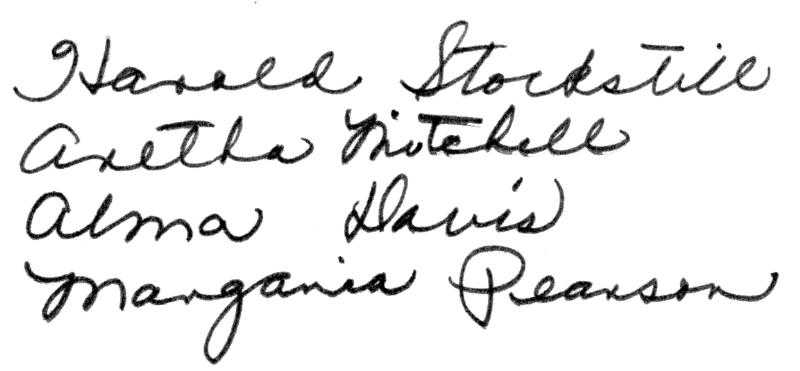 Harold Stockstill
Aretha Mitchell
Alma Davis
Margania Pearson